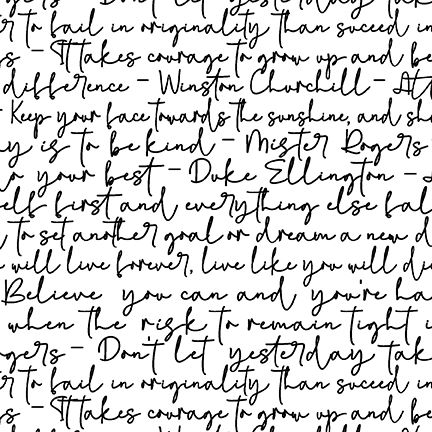 Don't let yesterday tak
r to fail in originality than suceed in
s - It takes courage to grow up and be
difference - Winston Churchill - Att
Keep your face towards the sunshine, and sh
y is to be kind - Mister Rogers
o your best - Duke Ellington -
elf first and everything else fal
to set another goal or dream a new d
will live forever, live like you will di
Believe you can and you're ha
when the risk to remain tight i
gers - Don't let yesterday tak
r to fail in originality than suceed in
s - It takes courage to grow up and be
difference - Winston Churchill - Att